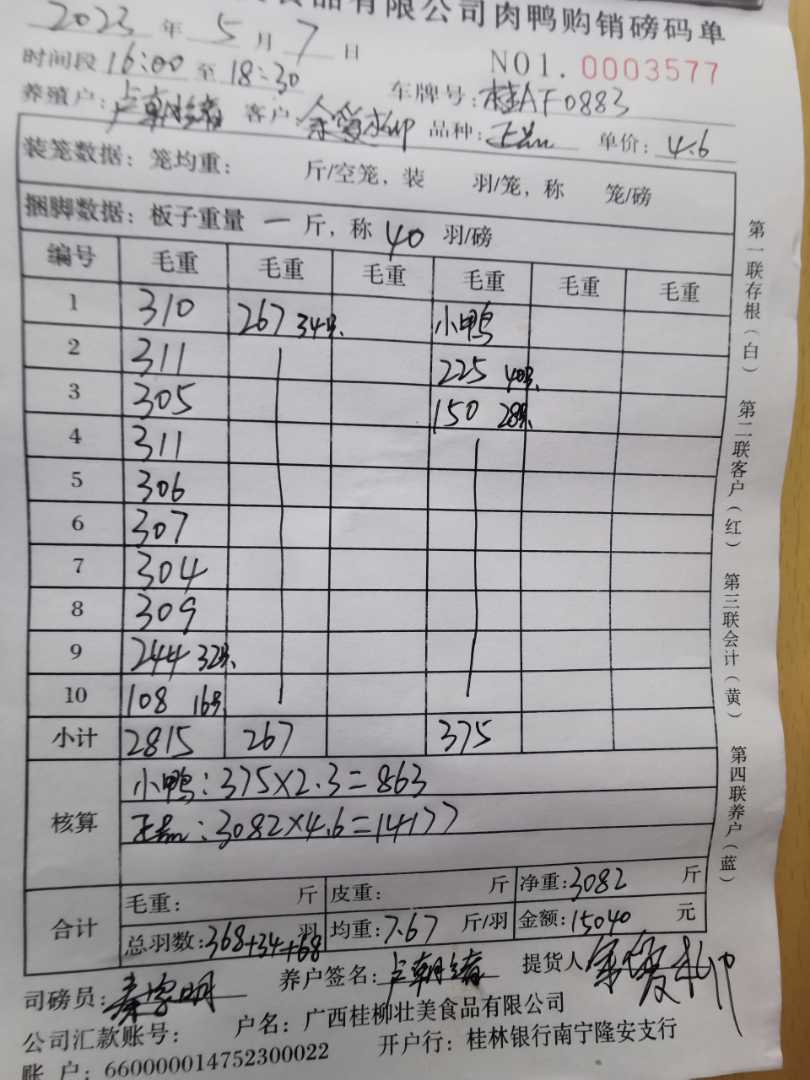 食品有限公司肉鸭购销磅码单
2023 年 5 月 7 日
NO1. 0003577
时间段 16:00 至 18:30
车牌号: 桂AF0883
养殖户: 客户: 品种: 正品 单价: 4.6
装笼数据: 笼均重: 斤/空笼, 装 羽/笼, 称 笼/磅
捆脚数据: 板子重量 一 斤, 称 40 羽/磅
编号 毛重 毛重 毛重 毛重 毛重 毛重
1 310 267 34只 小鸭
2 311 225 40只
3 305 150 28只
4 311
5 306
6 307
7 304
8 309
9 244 32只
10 108 16只
小计 2815 267 375
核算 小鸭: 375×2.3=863
正品: 3082×4.6=14177
合计 毛重: 斤 皮重: 斤 净重: 3082 斤
总羽数: 368+34+68 羽 均重: 7.67 斤/羽 金额: 15040 元
司磅员: 养户签名: 提货人
公司汇款账号: 户名: 广西桂柳壮美食品有限公司
账 户: 660000014752300022 开户行: 桂林银行南宁隆安支行
第一联存根(白)
第二联客户(红)
第三联会计(黄)
第四联养户(蓝)